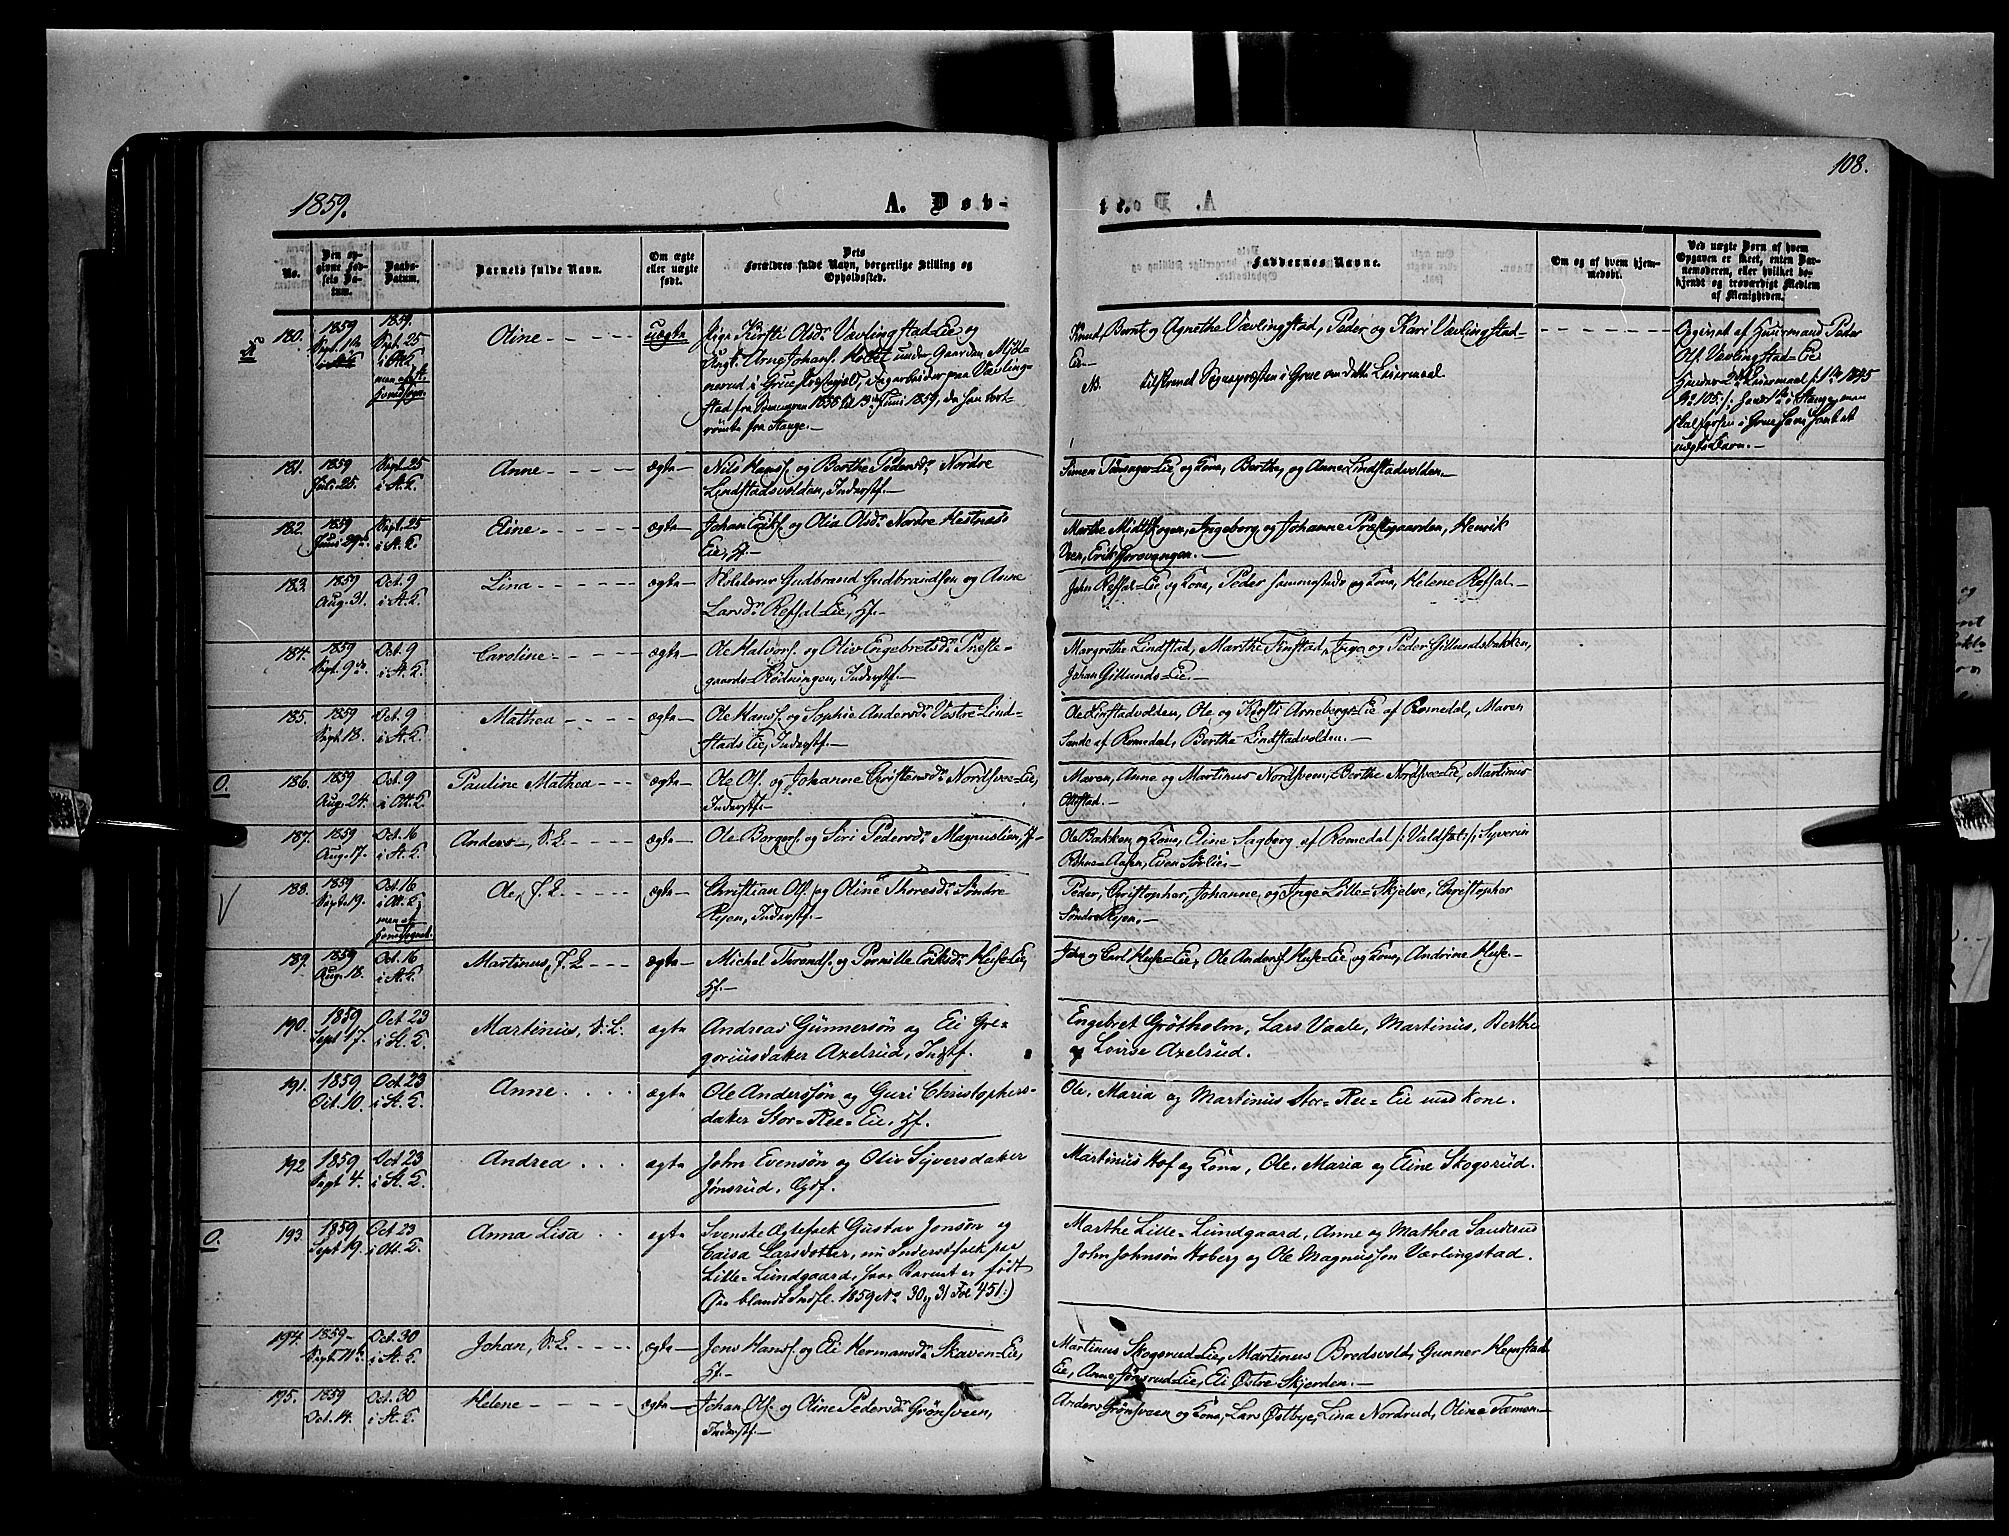 108.
1859.
A. Døb-
te.
No.
Den op-
givne Fød-
sels Da-
tum.
Daabs-
Datum.
Barnets fulde Navn.
Om ægte
eller uægte
født.
Dets
Forældres fulde Navn, borgerlige Stilling og
Opholdssted.
Faddernes Navne.
Om og af hvem hjem-
medøbt.
Ved uægte Børn af hvem
Opgaven er skeet, enten Bar-
nemoderen, eller hvilket be-
kjendt og troværdigt Medlem
af Menigheden.
180.
1859
Sept.
1859.
Sept. 25
i St. K.
Oline
uægte
Pige Kirsti Olsdr. Vævlingstad-Eie og
Ungk. Arne Johans. Holet under Gaarden
i Grue Præstegjeld, Dagarbeider paa Vævling-
stad fra Sommeren 1858 til 13de Juni 1859, da han bort-
rømte fra Stange.-
Knud, Bernt og Agnethe Vævlingstad, Peder og Kari Vævlingstad-
Eie-
NB. tilskrevet Sognepræsten i Grue om dette Leiermaal
Opgivet af Huusmand Peder
Ols. Vævlingstad-Eie
1845
No 105
i Stange, man
i Grue
uægte Barn.-
181.
1859
Juli 25.
Sept. 25
i St. K.
Anne
ægte
Nils Hans. og Berthe Pedersdr. Nordre
Lindstadvolden, Inderstf.-
Simen Tønsager-Eie og Kone, Berthe, og Anne Lindstadvolden.-
182.
1859
Juni 29de
Sept. 25
i St. K.
Eline
ægte
Johan Eriks. og Olia Olsdr. Nordre Hestnæs
Eie, Hf.-
Marthe Midtskogen, Ingeborg og Johanne Præstegaarden, Henrik
Veen, Erik Horavangen.-
183.
1859
Aug. 31.
Oct. 9
i St. K.
Lina
ægte
Gudbrand Gudbrandsen og Anne
Larsdr. Refsal-Eie, Hf.-
John Refsal-Eie og Kone, Peder og Kone, Helene Refsal.-
184.
1859
Sept. 9de
Oct. 9
i St. K.
Caroline
ægte
Ole Halvors. og Oliv Engebretsdr. Præste-
gaards-Rødningen, Inderstf.-
Margrethe Lindstad, Marthe Finstad, Inge og Peder Gillundsbakken,
Johan Gillunds-Eie.-
185.
1859
Sept. 18.
Oct. 9
i St. K.
Mathea
ægte
Ole Hans. og Sophie Andersdr. Vestre-Lind-
stads Eie, Inderstf.-
Ole Linstadvolden, Ole og Kirsti Arneberg-Eie af Romedal, Maren
Sande af Romedal, Berthe Lindstadvolden.-
O.
186.
1859
Aug. 24.
Oct. 9
i Ott. K.
Pauline Mathea
ægte
Ole Ols. og Johanne Christensdr. Nordsvee-Eie,
Inderstf.-
Maren, Anne og Martinus Nordsveen, Berthe Nordsvee-Eie, Martinus
Ottestad.-
187.
1859
Aug. 17.
Oct. 16
i St. K.
Anders, S. E.
ægte
Ole Borgers. og Siri Pedersdr. Magnuslien, Hf-
Ole Bakken og Kone, Eline Sagberg af Romedal /: Valdset :/ Syverin
Røhne-Aasen, Even Sørlie-
V
188.
1859
Sept. 19.
Oct. 16
i Ott. K.
men af
Hovedsognet.
Ole, F. E.
ægte
Christian Ols. og Oline Thoresdr. Søndre
Ryen, Inderstf.-
Peder, Christopher, Johanne, og Inge Lille-Skjelve, Christopher
Søndre Ryen.-
189.
1859
Aug. 18.
Oct. 16
i St. K.
Martinus, F. E
ægte
Michel Thronds. og Pernille Eriksdr. Huse-Eie,
Hf.-
John og Carl Huse-Eie, Ole Anders. Huse-Eie og Kone, Andrine Huse.-
190.
1859
Sept 17.
Oct 23
i St. K.
Martinius, S. E.
ægte
Andreas Gunnersøn og Eli Gre-
goriusdater Axelsrud, Indstf.
Engebret Grøtholm, Lars Vaale, Martinus, Berthe
og Lovise Axelsrud.
191.
1859
Oct. 10.
Oct. 23
i St. K.
Anne
ægte
Ole Anderssøn og Guri Christophers-
dater Stor-Ree-Eie, Hf.
Ole, Maria og Martinus Stor-Ree-Eie med Kone.
192
1859
Sept 4.
Oct 23
i St. K.
Andrea
ægte
John Evensøn og Oliv Syversdater
Jønsrud, Gdf.
Martinus Hof og Kone, Ole, Maria og Eline Skogsrud.
O.
193.
1859
Sept 19.
Oct 23
i Ott. K.
Anna Lisa
ægte
Svenske Ægtefolk Gustav Jonsøn og
Caisa Larsdotter, nu Inderstfolk paa
Lille-Lundgaard, hvor Barnet er født
(see blandt Indfl. 1859 No 30 og 31 Fol 451.)
Marthe Lille-Lundgaard, Anne og Mathea Sanderud
John Johnsøn Hoberg og Ole Magnussøn Vævlingstad.
194.
1859
Sept. 11te
Oct. 30
i St. K.
Johan, S. E.
ægte
Jens Hans. og Eli Hermansdr. Skaven-Eie,
Hf.-
Martinus Skogsrud-Eie, Martinus Bredsvold, Gunner Hemstad-
Eie, Anne Jønsrud-Eie, Eli Østre Skjerden.-
195.
1859
Oct. 14.
Oct. 30
i St. K.
Helene
ægte
Johan Ols. og Oline Pedersdr. Grønsveen,
Inderstf.-
Anders Grønsveen og Kone, Lars Østbye, Lina Nordrud, Olina Tomen.-